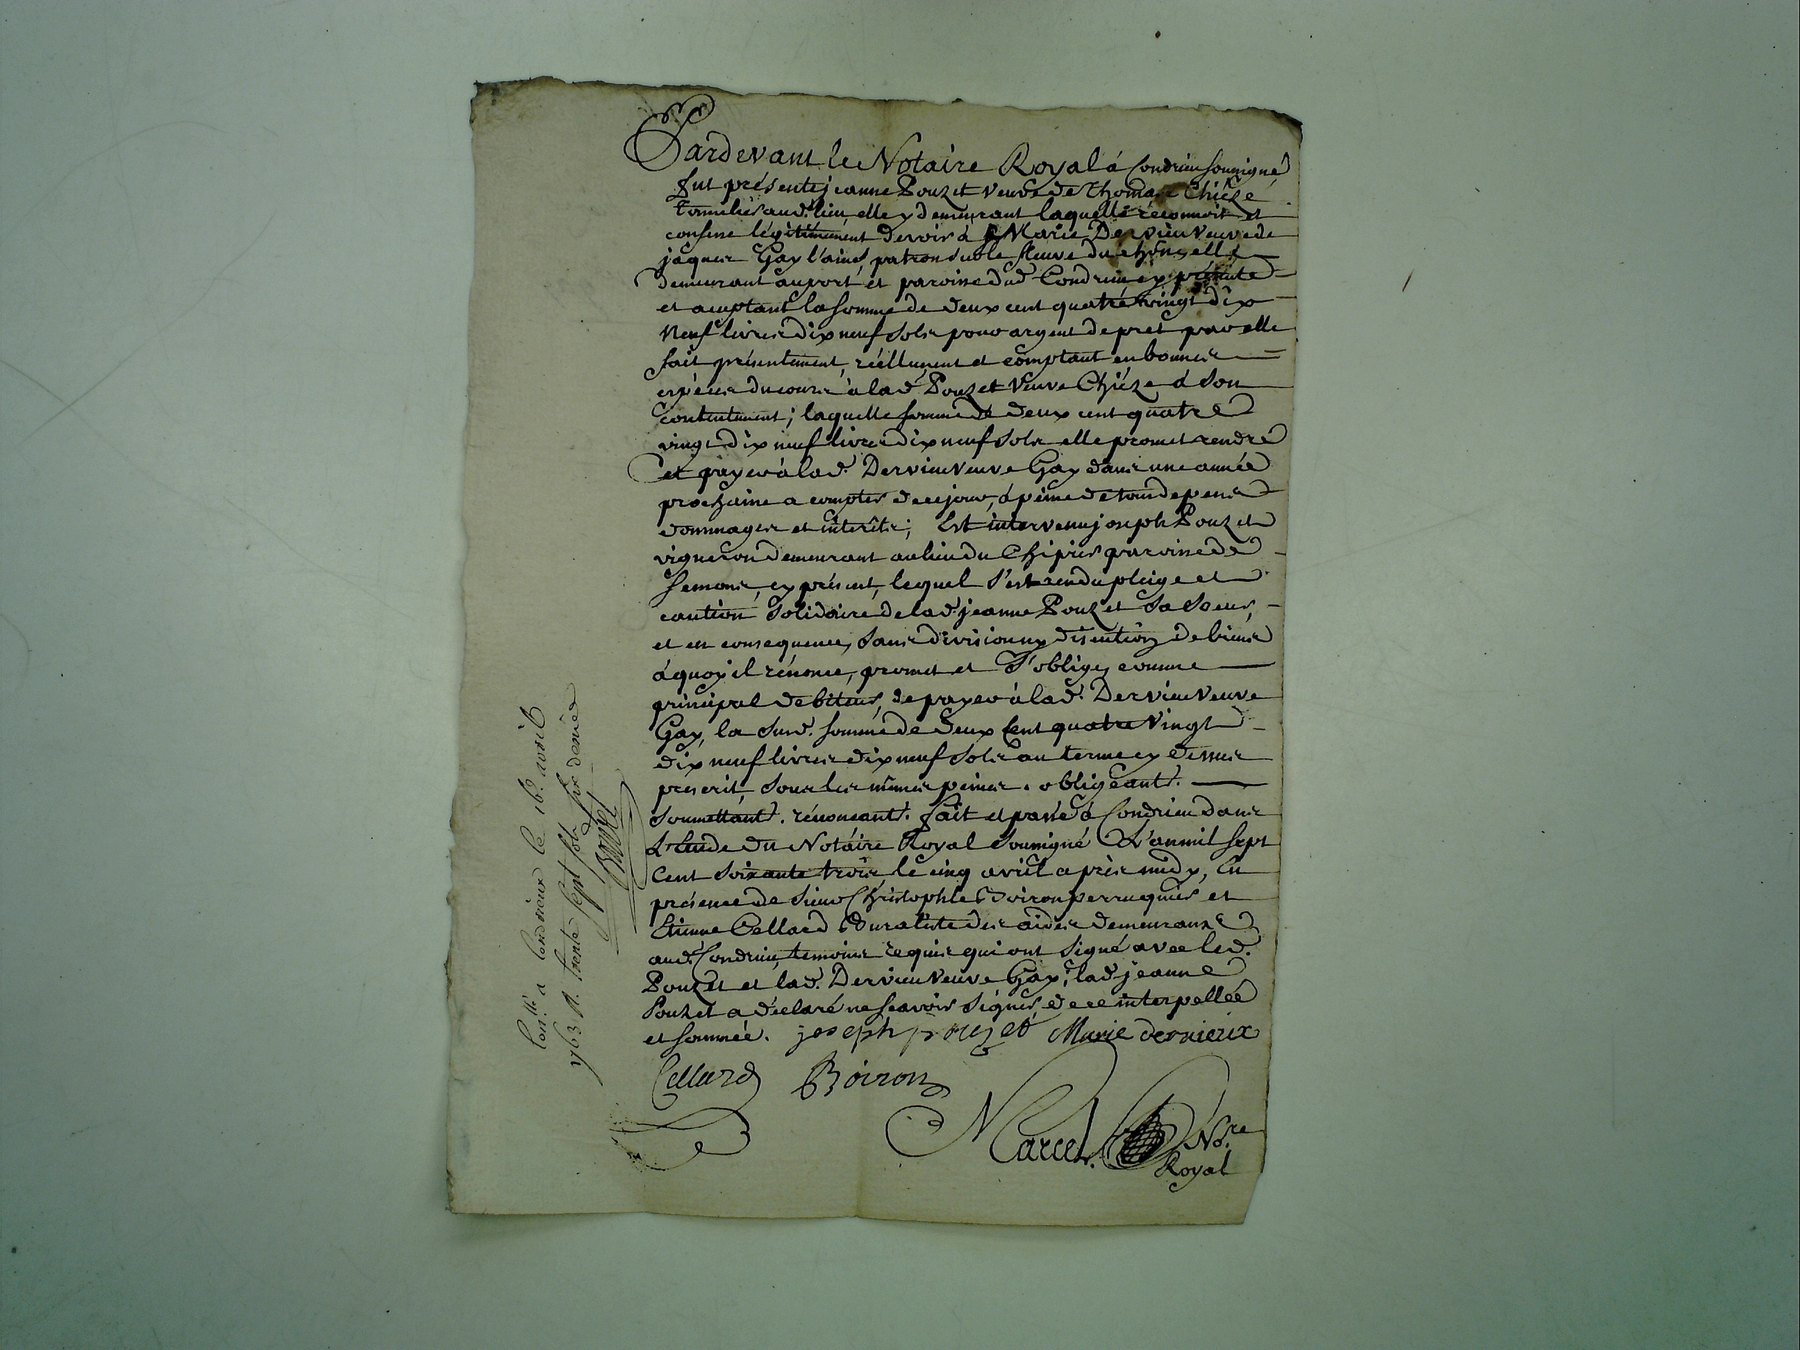 Pardevant le Notaire Royal á Condrieu soussigné
fut présente jeanne Pouzet veuve de Thomas Chièze
tonnelier aud. lieu, elle y demeurant laquelle réconnoit et
confesse légitimement devoir á Marie Dervieu veuve de
jaques Gay l'ainé, patron sur le fleuve du rhône, elle
demeurant au port et paroisse dud. Condrieu, cy présente
et acceptant la somme de deux cent quatre vingt dix
Neuf livres dix neuf sols pour argent de pret par elle
fait présentement, réellement et comptant en bonnes
espéces du cours à lad. Pouzet veuve Chièze á son
contentement; laquelle somme de deux cent quatre
vingt dix neuf livres dix neuf sols elle promet rendre
et payer à lad. Dervieu veuve Gay dans une année
prochaine a compter de ce jour, á peine de tous depens
dommages et interêts; Est intervenu joseph Pouzet
vigneron demeurant au lieu du paroisse de
Semons, cy présent, lequel s'est rendu pleige et
caution solidaire de lad. jeanne Pouzet sa soeur,
et en consequence, sans division ny discution de biens
á quoy il rénonce, promet et s'oblige, comme
principal debiteur, de payer à lad. Dervieu veuve
Gay, la susd. somme de deux Cent quatre vingt
dix neuf livres dix neuf sols au terme cy dessus
prescrit, sous les mêmes peines. obligeant.
soumettant. rénonceant. fait et passé á Condrieu dans
L'Etude du Notaire Royal soussigné L'an mil sept
Cent soixante trois, le cinq avril après midy, En
présence de sieur Christophle Boiron perruquier et
Etienne Cellard Buraliste des aides demeurants
aud. Condrieu, temoins requis qui ont signé avec led.
Pouzet et lad. Dervieu veuve Gay, lad. jeanne
Pouzet a déclaré ne sçavoir signer, de ce interpellée
et sommée. joseph pouzet Marie dervieux
Cellard Boiron
Marcel Nore.
Royal
Conlle. a Condrieu le 16e. avril
1763 R. trente sept sols six denier